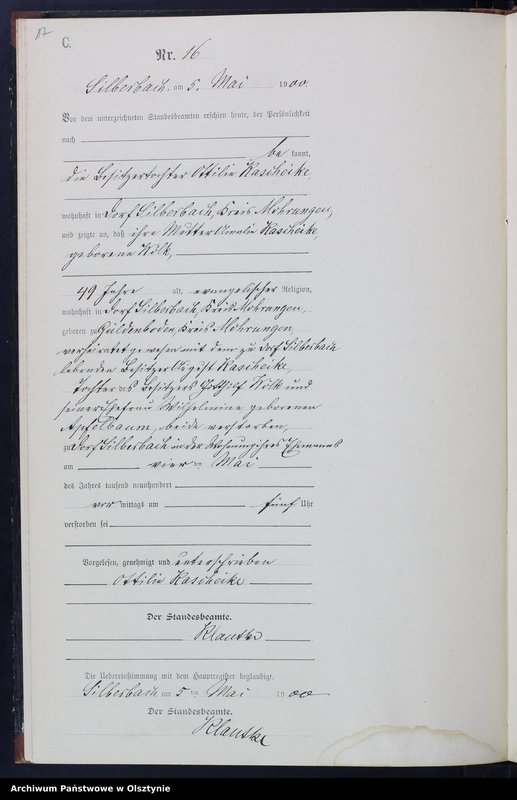 17
C.
Nr. 16
Silberbach, am 5. Mai 1900
Vor dem unterzeichneten Standesbeamten erschien heute, der Persönlichkeit
nach
be kannt,
die Besitzertochter Ottilie Kascheike,
wohnhaft in Dorf Silberbach, Kreis Mohrungen,
und zeigte an, daß ihre Mutter Amalie Kascheike,
geborene Kölk,
49 Jahre alt, evangelischer Religion,
wohnhaft in Dorf Silberbach, Kreis Mohrungen,
geboren zu Güldenboden, Kreis Mohrungen
verheiratet gewesen mit dem zu Dorf Silberbach
lebenden Besitzer August Kascheike,
Tochter des Besitzers Gotthilf Kölk und
seiner Ehefrau Wilhelmine geborenen
Apfelbaum, beide verstorben,
zu Dorf Silberbach in der Wohnung ihres Ehemannes
am vierten Mai
des Jahres tausend neunhundert
vor mittags um fünf Uhr
verstorben sei
Vorgelesen, genehmigt und unterschrieben
Ottilie Kascheike
Der Standesbeamte.
Klautke
Die Uebereinstimmung mit dem Hauptregister beglaubigt.
Silberbach am 5 ten Mai 1900
Der Standesbeamte.
Klautke
Archiwum Państwowe w Olsztynie